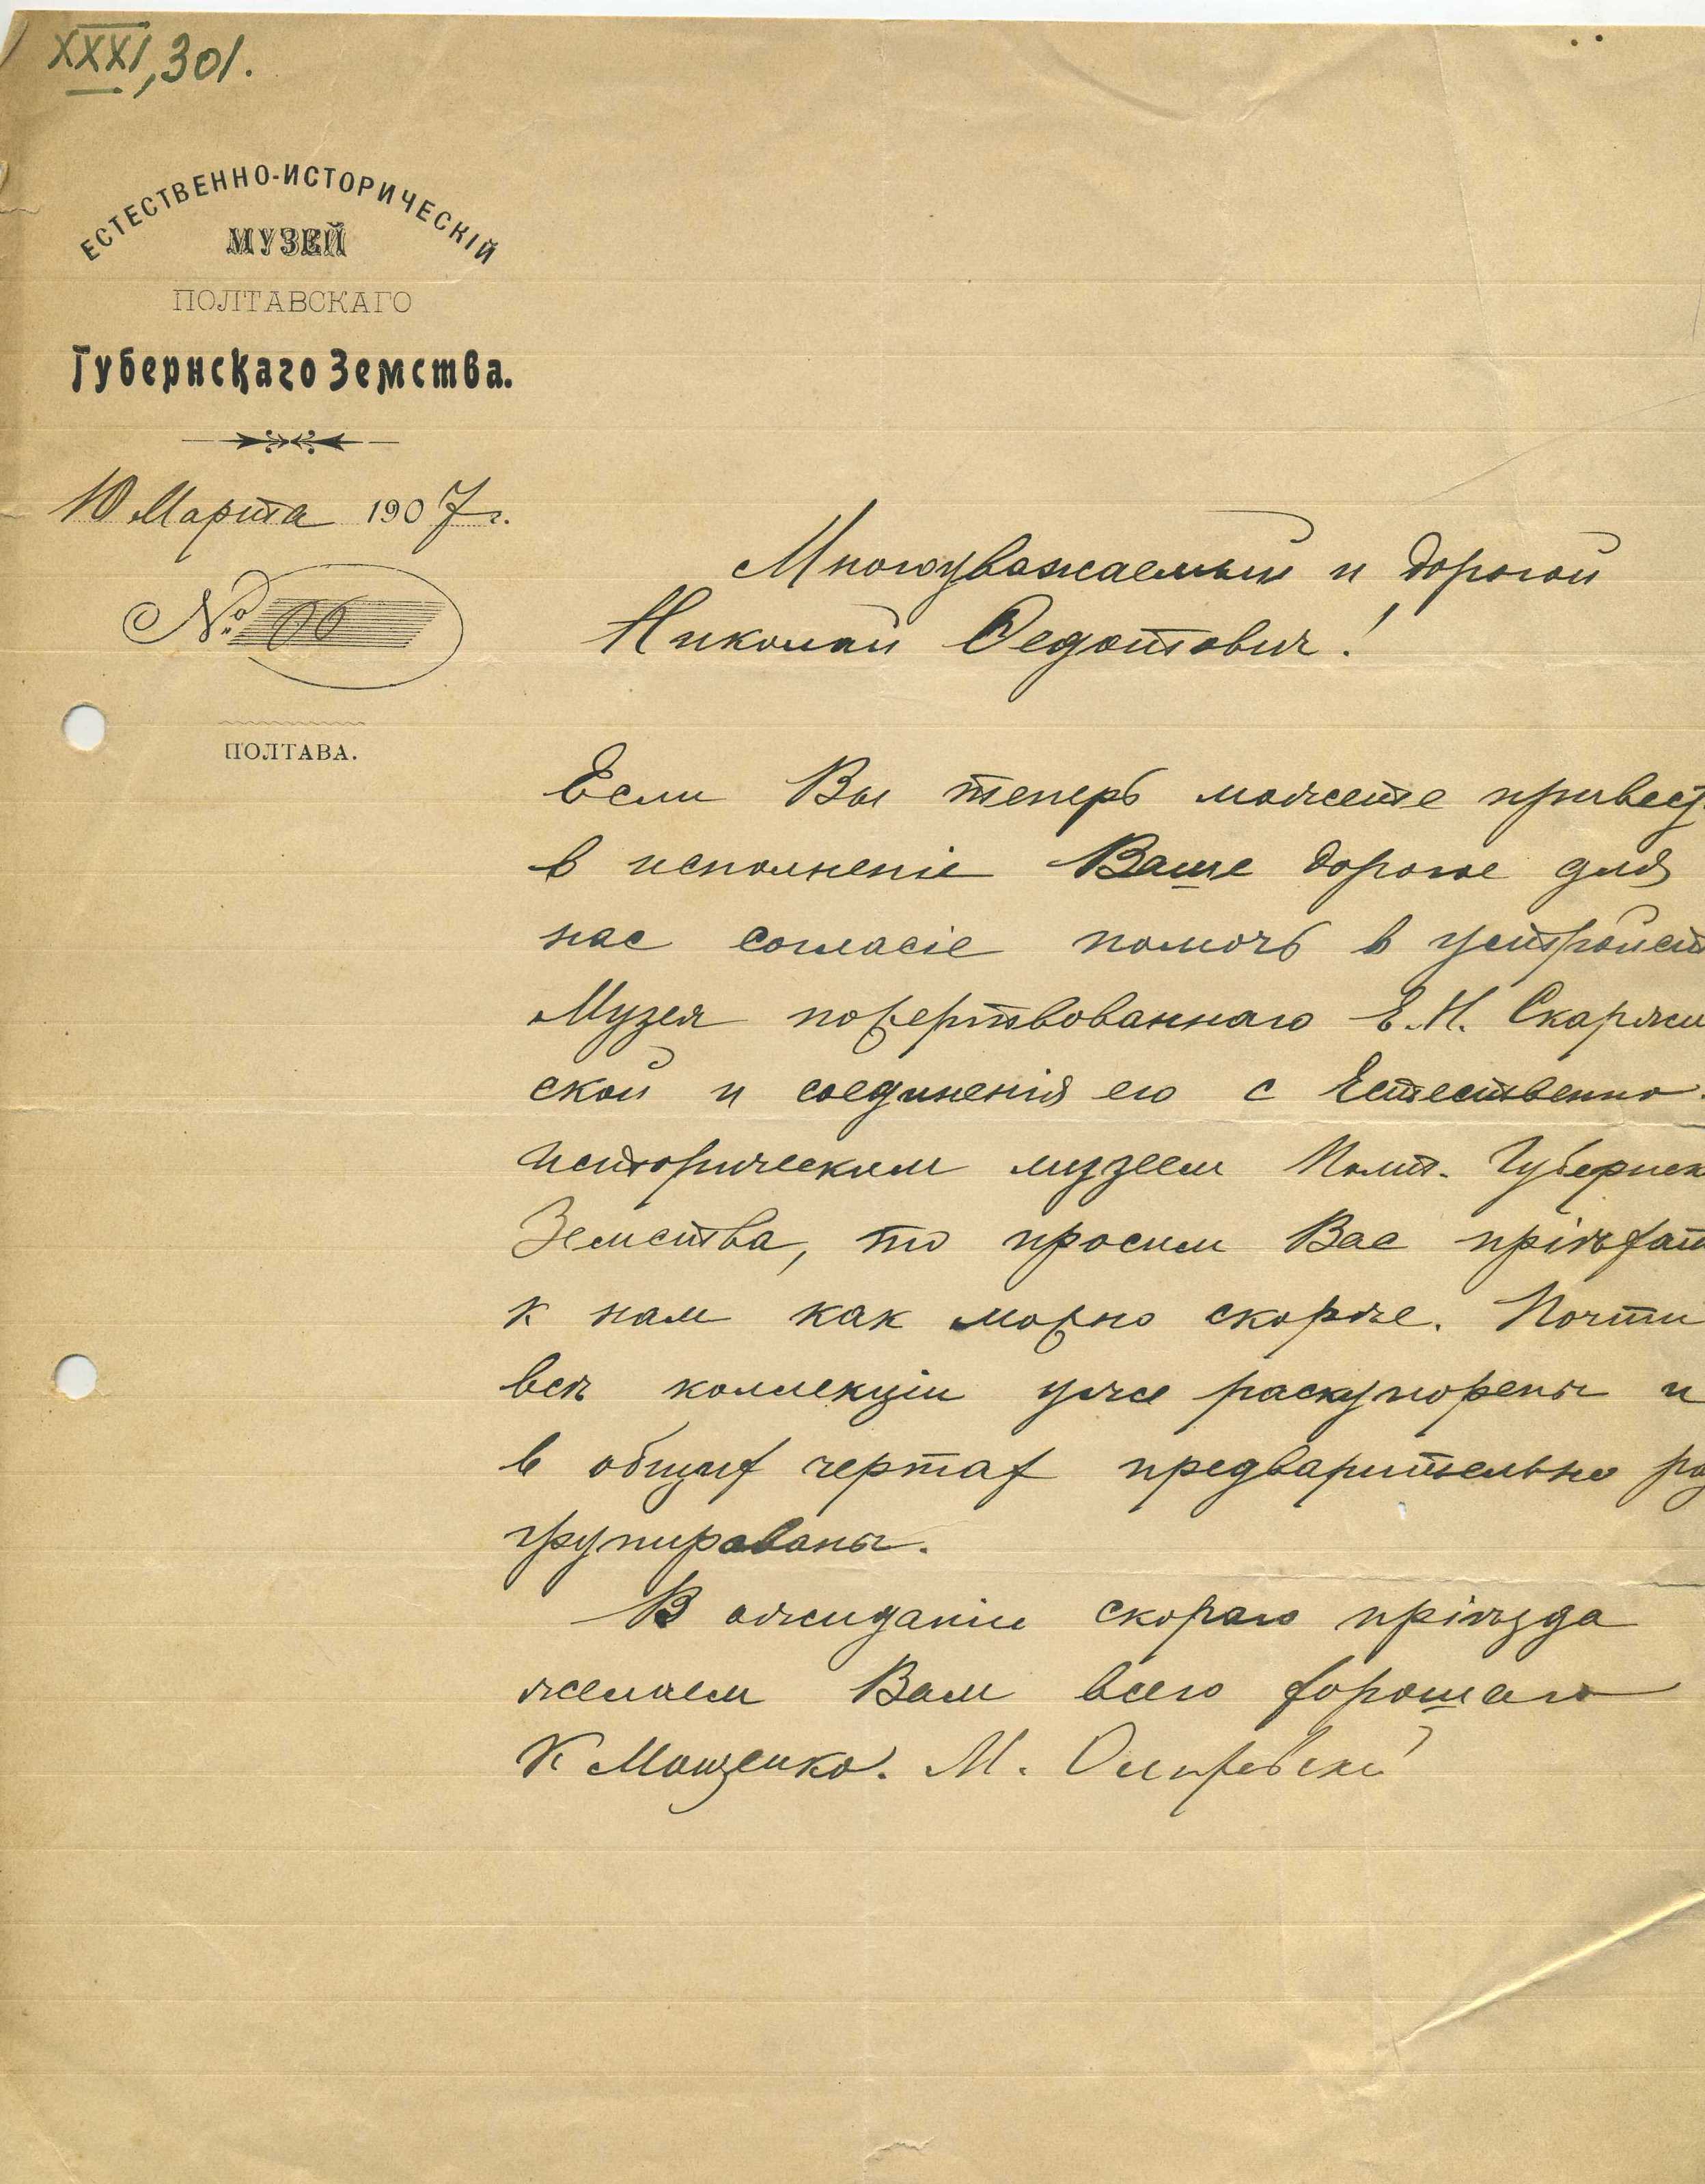 XXXI, 301.
ЕСТЕСТВЕННО-ИСТОРИЧЕСКІЙ
МУЗЕЙ
ПОЛТАВСКАГО
Губернскаго Земства.
10 Марта 1907 г.
№ 66
ПОЛТАВА.
Многоуважаемый и дорогой
Николай Федотович!
Если Вы теперь можете привест
в исполненіе Ваше дорогое для
нас согласіе помочь в устройст
Музея пожертвованнаго Е.Н. Скаржи
ской и соединенія его с Естественно-
историческим музеем Полт. Губернск
Земства, то просим Вас пріѣхат
к нам как можно скорѣе. Почти
всѣ коллекціи уже раскупорены и
в общих чертах предварительно ра
групированы.
В ожиданіи скораго пріѣзда
желаем Вам всего хорошаго
К Мощенко. М. Олеховскій